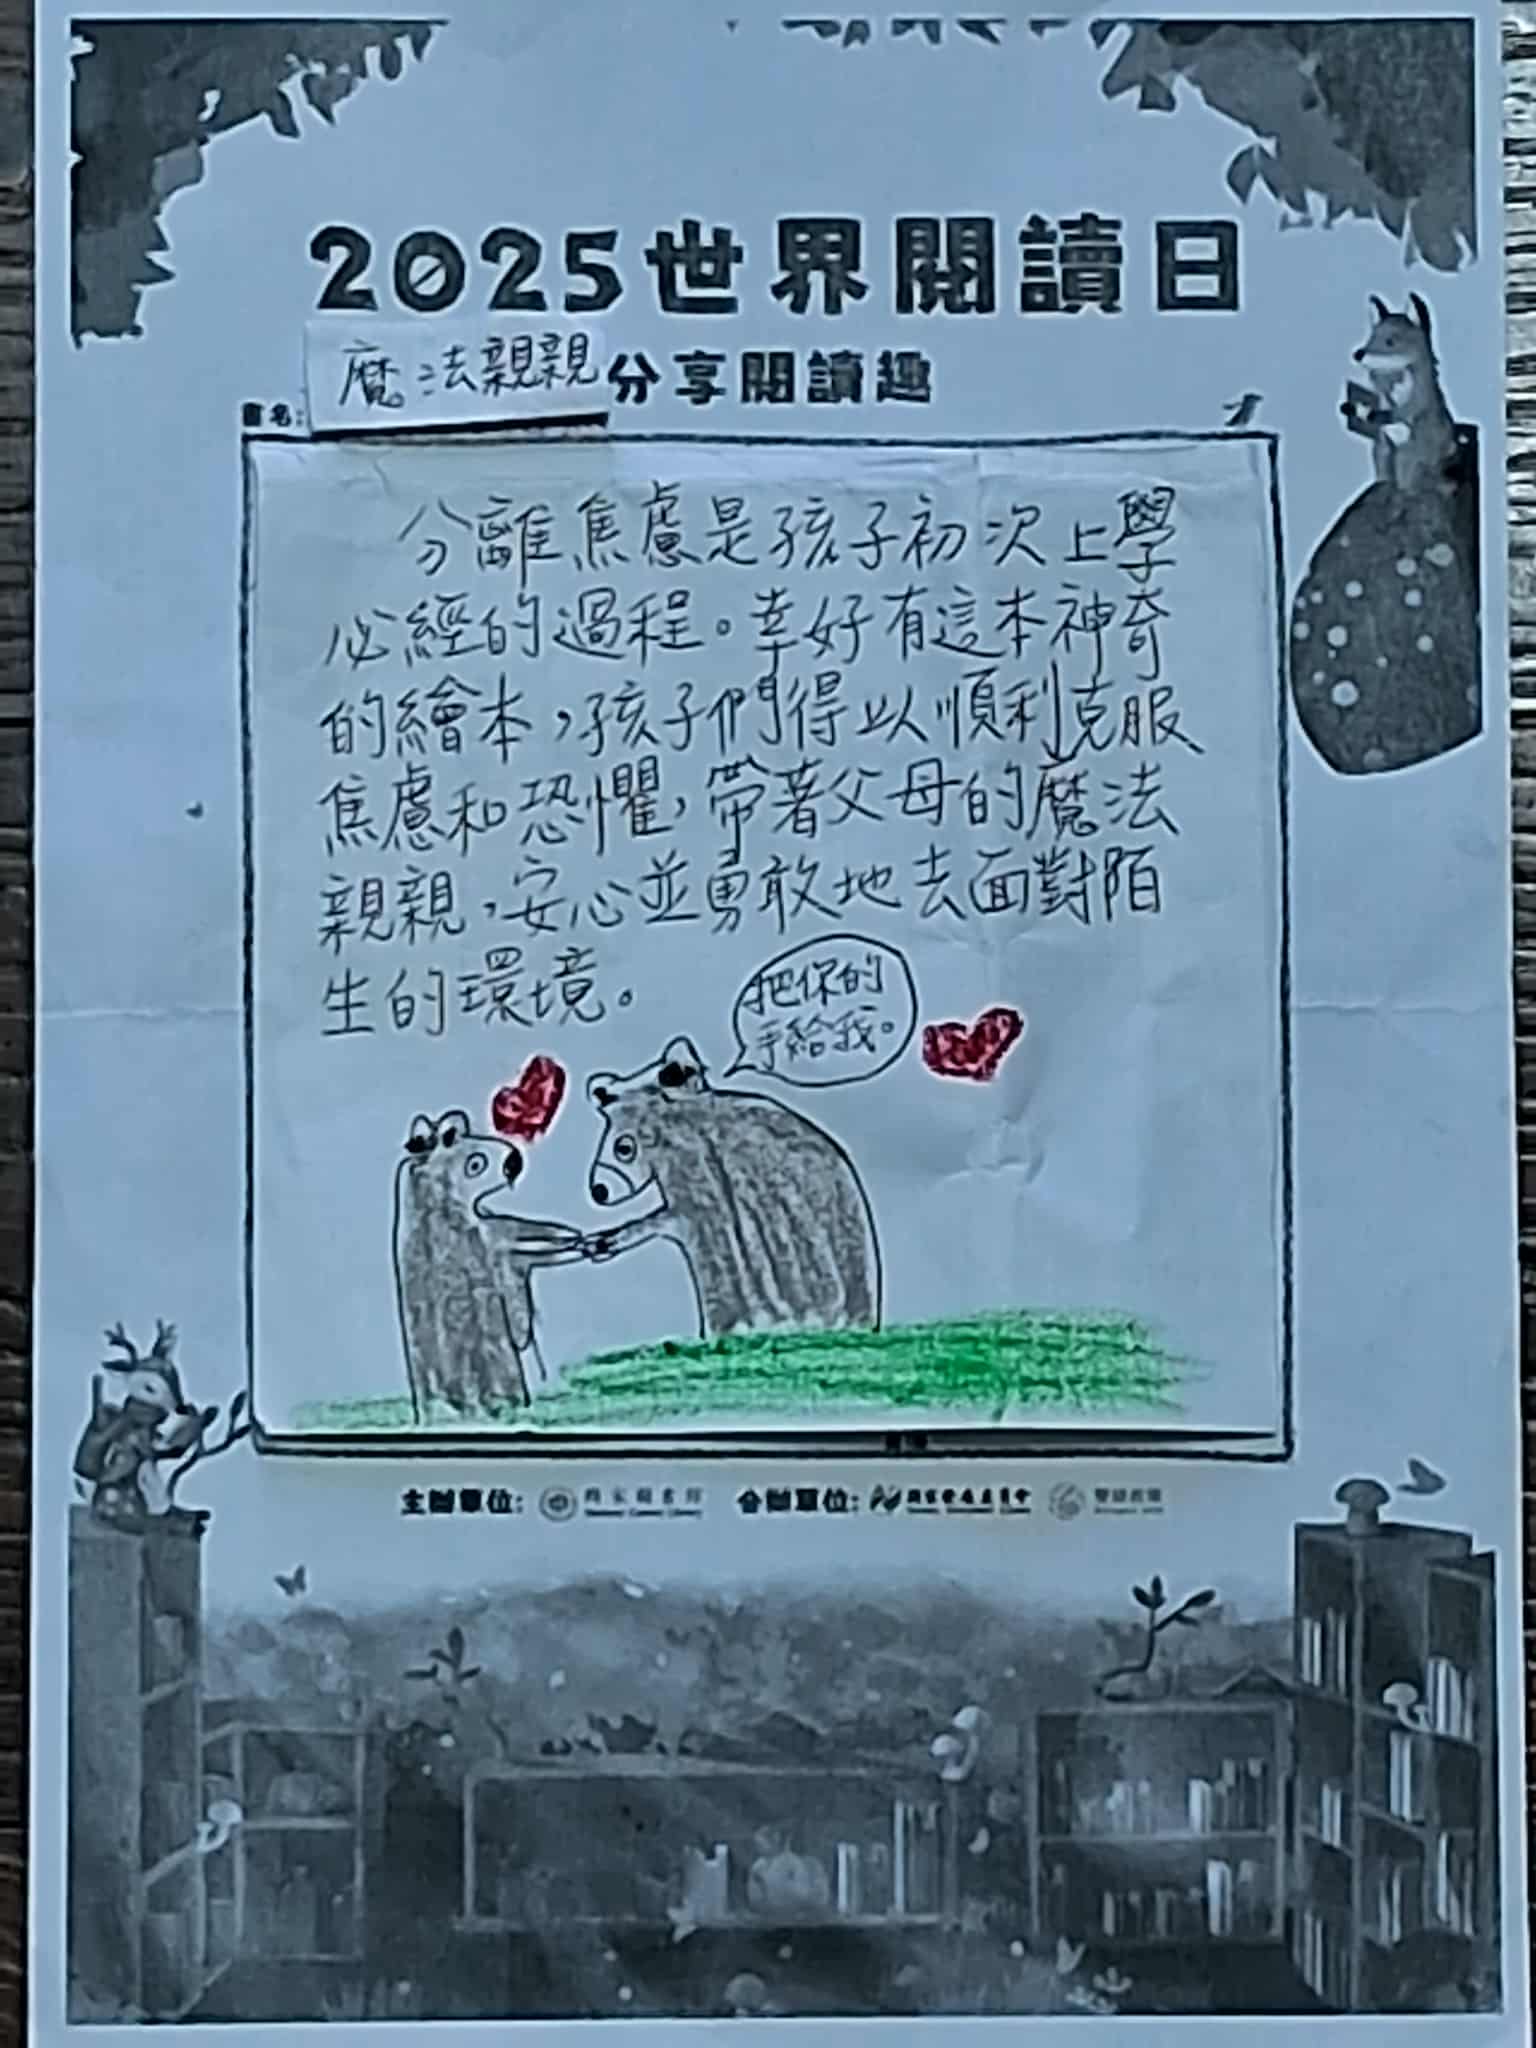 2025世界閱讀日
魔法親親 分享閱讀趣
書名:
分離焦慮是孩子初次上學
必經的過程。幸好有這本神奇
的繪本,孩子們得以順利克服
焦慮和恐懼,帶著父母的魔法
親親,安心並勇敢地去面對陌
生的環境。
把你的
手給我。
主辦單位: 國家圖書館 合辦單位: